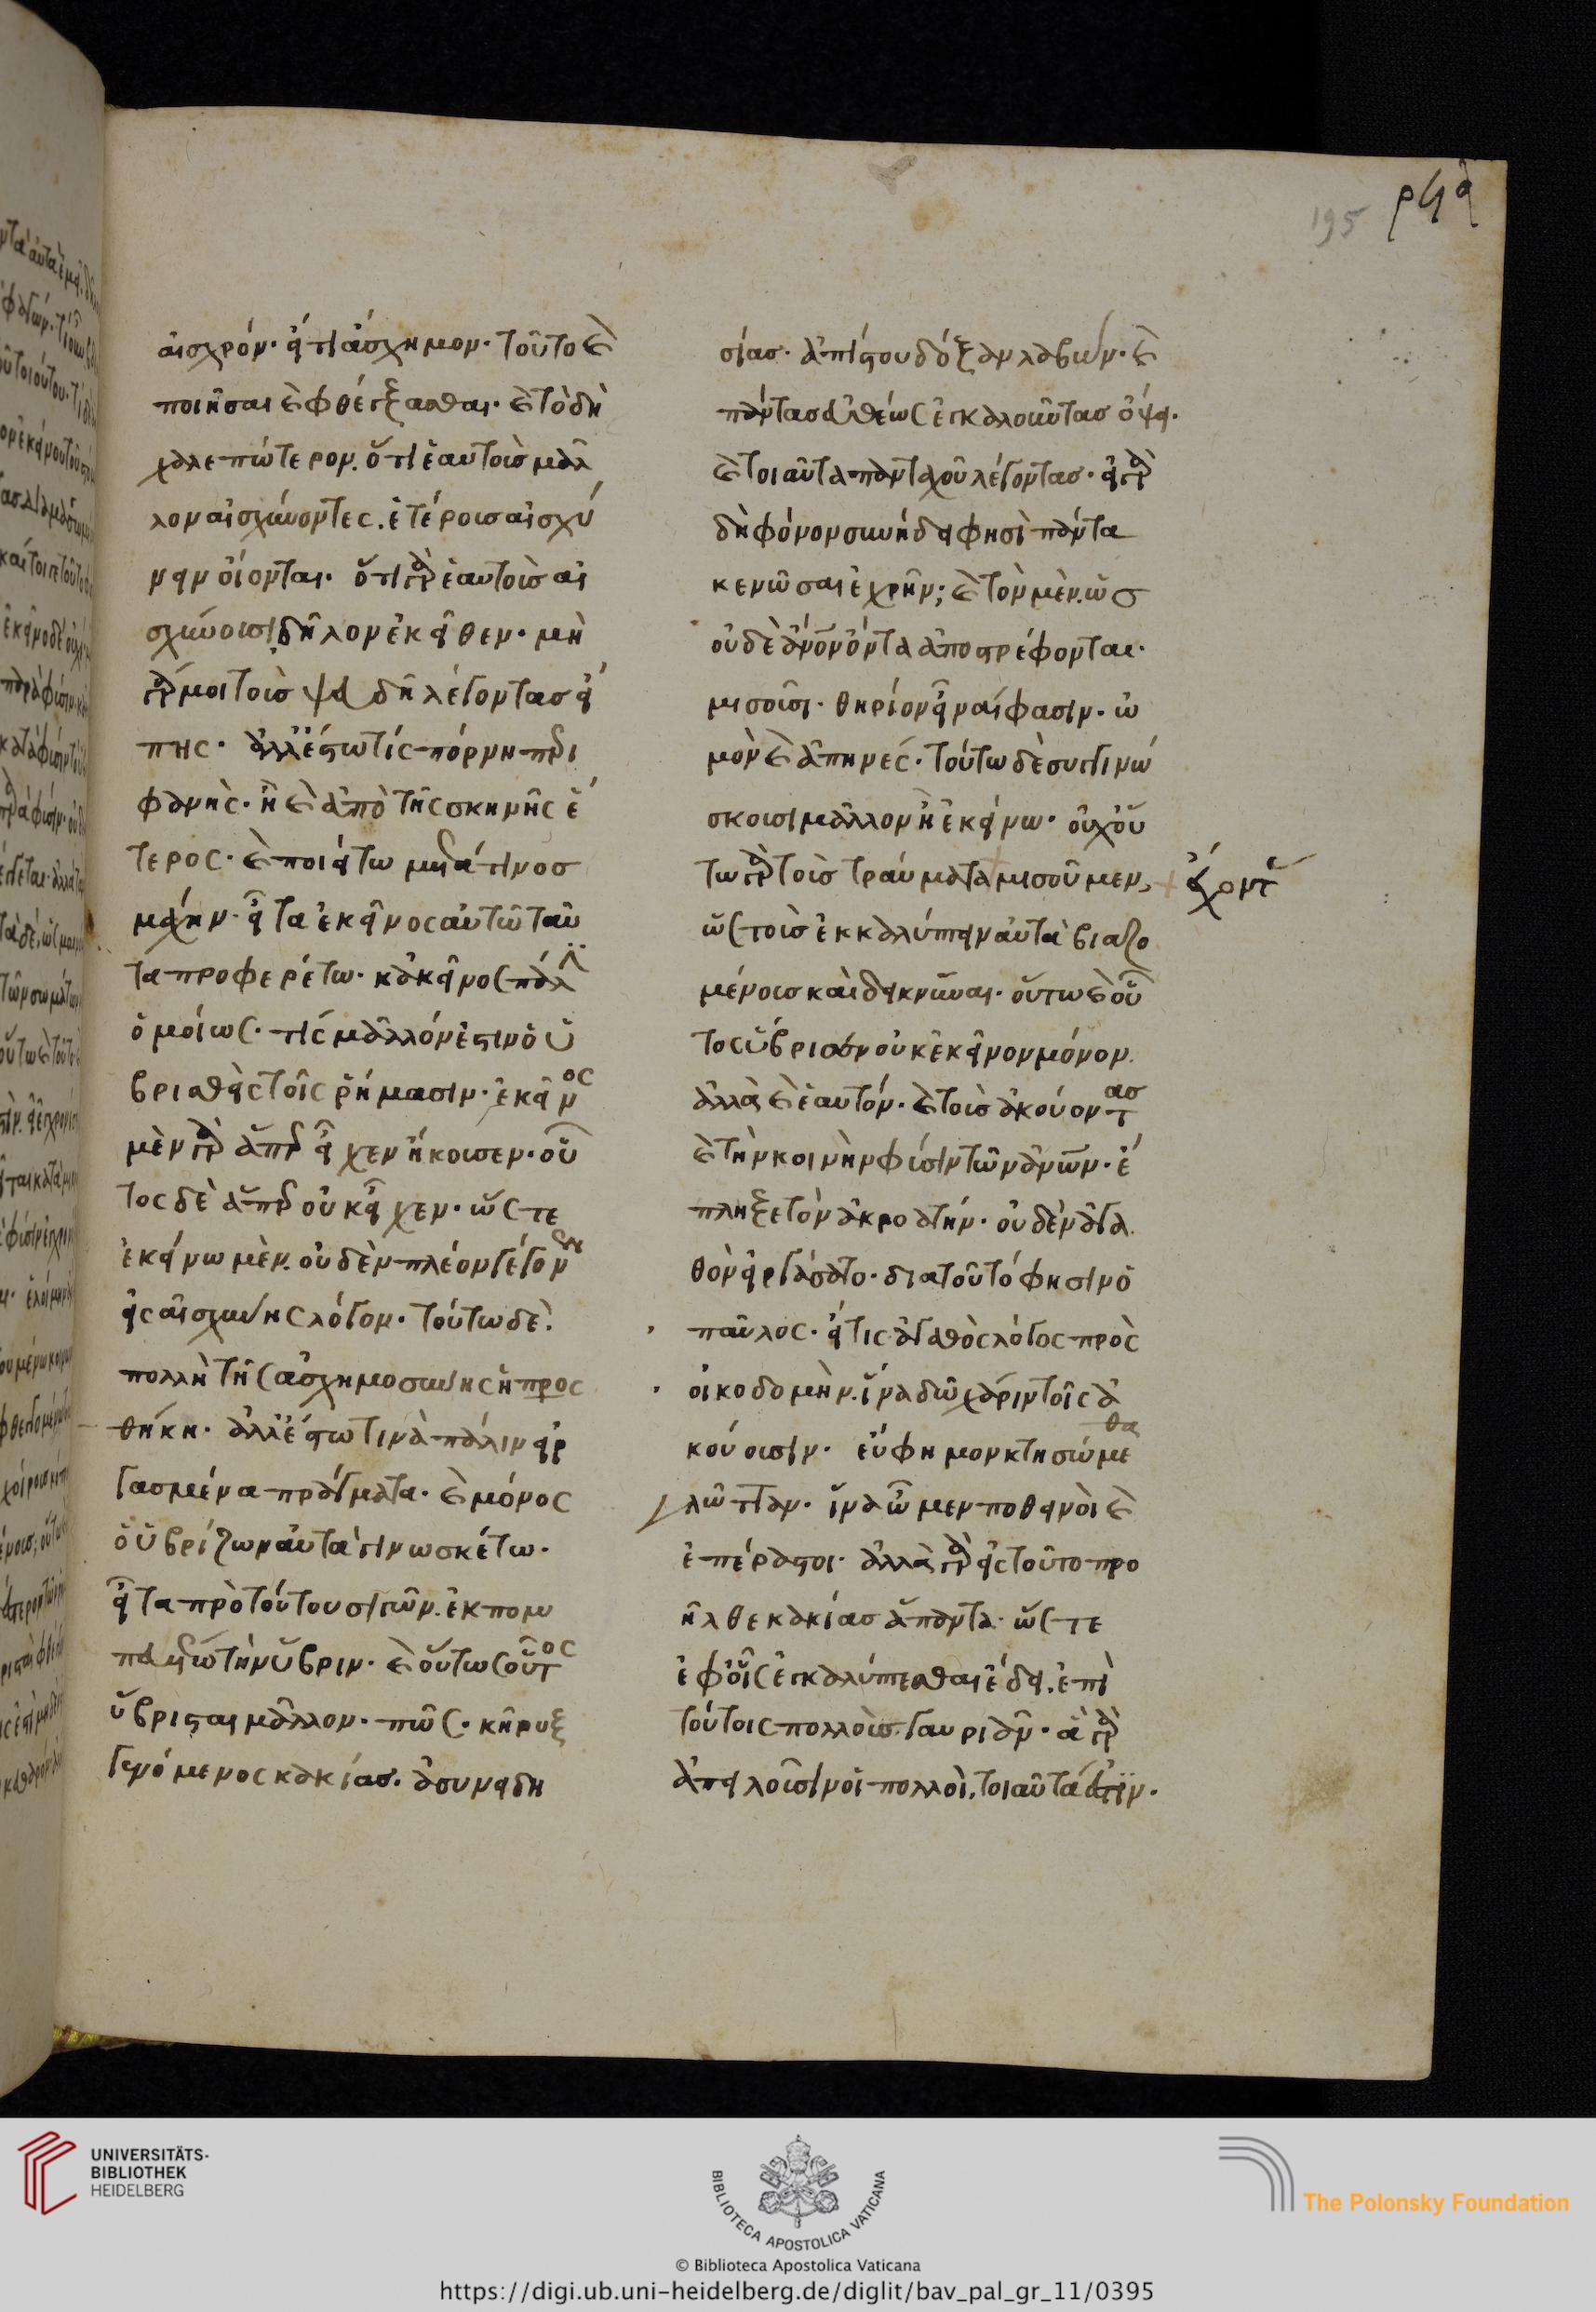 195 ρϟα
αἰσχρόν· εἴ τι ἄσχημον· τοῦτο καὶ
ποιῆσαι καὶ φθέγξασθαι· καὶ τὸ δὴ
χαλεπώτερον. ὅτι ἑαυτοὺς μᾶλ
λον αἰσχύνοντες. ἑτέρους αἰσχύ
νειν οἴονται. ὅτι γὰρ ἑαυτοὺς αἰ
σχύνουσι, δῆλον ἐκεῖθεν· μὴ
γάρ μοι τοὺς ψευδῆ λέγοντας εἴ
πῃς· ἀλλ' ἔστω τίς πόρνη περι
φανὴς· ἢ καὶ ἀπὸ τῆς σκηνῆς ἕ
τερος· καὶ ποιείτω μετά τινος
μάχην· εἶτα ἐκεῖνος αὐτῶ ταῦ
τα προφερέτω· κἀκεῖνος πάλ
ὁμοίως. τίς μᾶλλόν ἐστιν ὁ ὑ
βρισθεὶς τοῖς ῥήμασιν· ἐκεῖνος
μὲν γὰρ ἅπερ εἶχεν ἤκουσεν· οὗ
τος δὲ ἅπερ οὐκ εἶχεν· ὥστε
ἐκείνω μὲν. οὐδὲν πλέον γέγονεν
εἰς αἰσχύνης λόγον. τούτω δὲ.
πολλὴ τῆς ἀσχημοσύνης ἡ προς
θήκη. ἀλλ' ἔστω τινὰ πάλιν εἰρ
γασμένα πράγματα. καὶ μόνος
ὁ ὑβρίζων αὐτὰ γινωσκέτω.
εἶτα πρὸ τούτου σιγῶν. ἐκπομ
πευέτω τὴν ὕβριν. καὶ οὕτως οὗτος
ὕβρισται μᾶλλον. πῶς. κῆρυξ
γενόμενος κακίας. ἀσυνειδη
σίας. ἀπίστου δόξαν λαβών. καὶ
πάντας εὐθέως ἐγκαλοῦντας ὄψει.
καὶ τοιαῦτα πανταχοῦ λέγοντας. εἰ γὰρ
δὴ φόνον συνήδει φησὶ πάντα
κενῶσαι ἐχρῆν; καὶ τὸν μὲν. ὡς
οὐδὲ ἄνον ὄντα ἀποστρέφονται.
μισοῦσι. θηρίον εἶναί φασιν. ὠ
μὸν καὶ ἀπηνές. τούτω δὲ συγγινώ
σκουσι μᾶλλον ἢ ἐκείνω. οὐχ οὕ
τω γὰρ τοὺς τραύματα μισοῦμεν, ἔχοντ
ὡς τοὺς ἐκκαλύπτειν αὐτὰ βιαζο
μένους καὶ δεικνῦναι. οὕτω καὶ οὗ
τος ὕβρισεν οὐκ ἐκεῖνον μόνον.
ἀλλὰ καὶ ἑαυτόν. καὶ τοὺς ἀκούοντας
καὶ τὴν κοινὴν φύσιν τῶν ἀνων. ἔ
πληξε τὸν ἀκροατήν. οὐδὲν ἀγα
θὸν εἰργάσατο. διατοῦτό φησιν ὁ
παῦλος. εἴ τις ἀγαθὸς λόγος πρὸς
οἰκοδομὴν. ἵνα δῶ χάριν τοῖς ἀ
κούουσιν. εὔφημον κτησώμεθα
γλῶτταν. ἵνα ὦμεν ποθεινοὶ καὶ
ἐπέραστοι. ἀλλὰ γὰρ εἰς τοῦτο προ
ῆλθε κακίας ἅπαντα. ὥστε
ἐφ' οἷς ἐγκαλύπτεσθαι ἔδει. ἐπὶ
τούτοις πολλοὺς γαυριᾶν. ἃ γὰρ
ἀπειλοῦσιν οἱ πολλοὶ, τοιαῦτά ἐστιν.
UNIVERSITÄTS-
BIBLIOTHEK
HEIDELBERG
BIBLIOTECA APOSTOLICA VATICANA
© Biblioteca Apostolica Vaticana
The Polonsky Foundation
https://digi.ub.uni-heidelberg.de/diglit/bav_pal_gr_11/0395